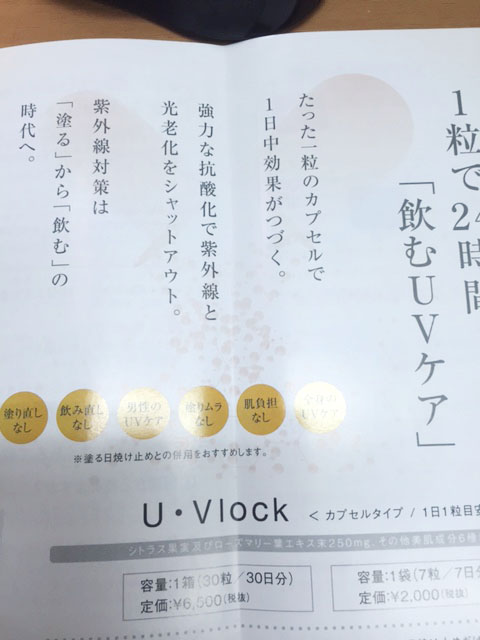 1粒で24時間
「飲むUVケア」
たった一粒のカプセルで
1日中効果がつづく。
強力な抗酸化で紫外線と
光老化をシャットアウト。
紫外線対策は
「塗る」から「飲む」の
時代へ。
塗り直し
なし
飲み直し
なし
男性の
UVケア
塗りムラ
なし
肌負担
なし
全身の
UVケア
※塗る日焼け止めとの併用をおすすめします。
U・Vlock
< カプセルタイプ / 1日1粒目安
シトラス果実及びローズマリー葉エキス末250mg、その他美肌成分6種
容量:1箱(30粒/30日分)
定価:¥6,500(税抜)
容量:1袋(7粒/7日分
定価:¥2,000(税抜)